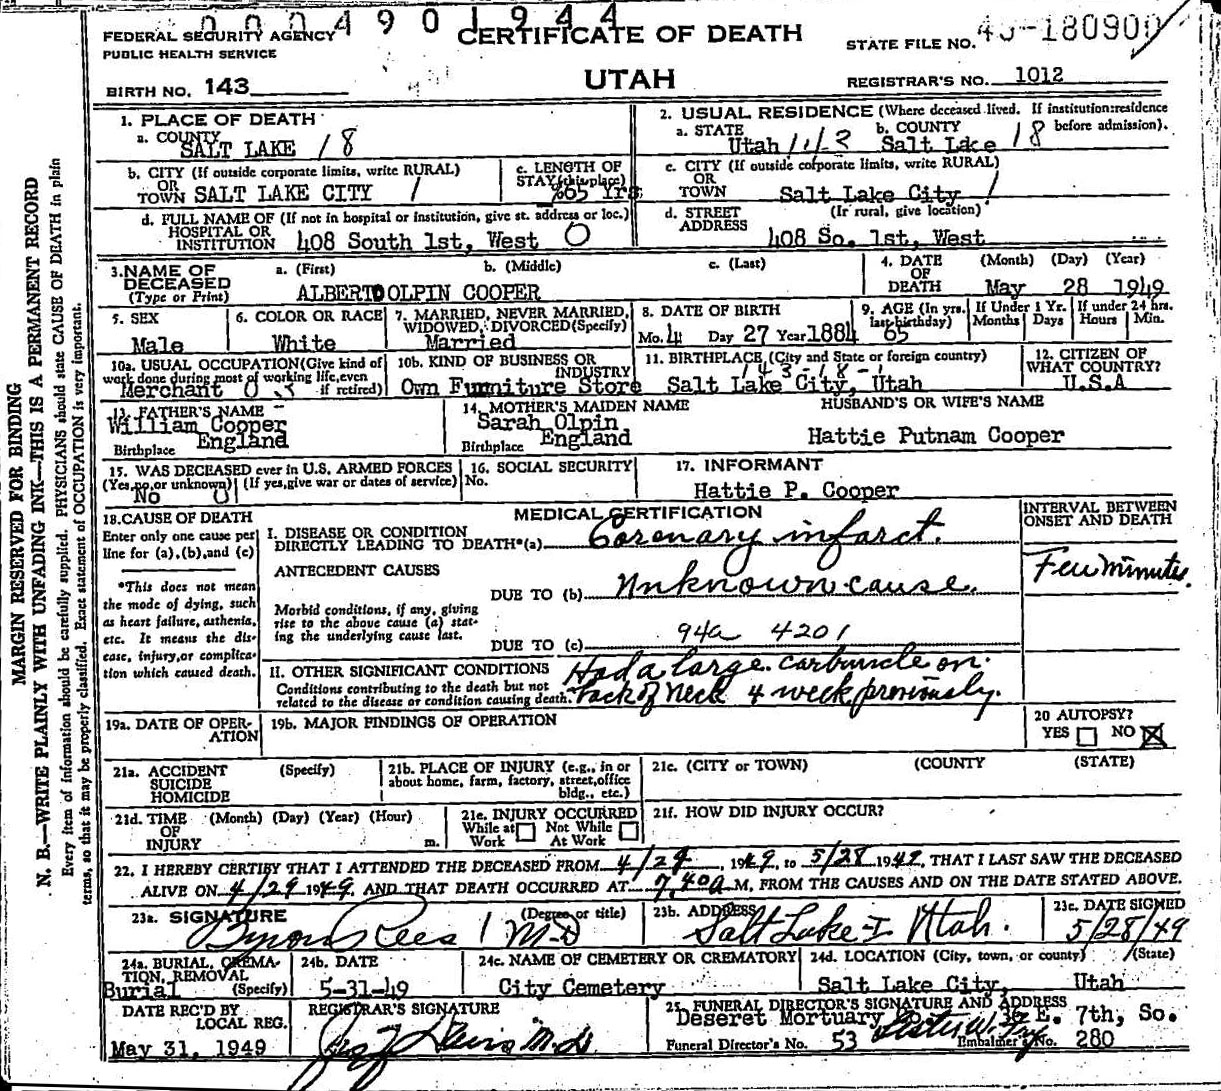 000490 1944
FEDERAL SECURITY AGENCY
PUBLIC HEALTH SERVICE
CERTIFICATE OF DEATH
STATE FILE NO. 180900
BIRTH NO. 143
UTAH
REGISTRAR'S NO. 1012
MARGIN RESERVED FOR BINDING
N. B.—WRITE PLAINLY WITH UNFADING INK—THIS IS A PERMANENT RECORD
Every item of information should be carefully supplied. PHYSICIANS should state CAUSE OF DEATH in plain
terms, so that it may be properly classified. Exact statement of OCCUPATION is very important.
1. PLACE OF DEATH
a. COUNTY
SALT LAKE 18
2. USUAL RESIDENCE (Where deceased lived. If institution: residence
before admission).
a. STATE b. COUNTY
Utah Salt Lake 18
b. CITY (If outside corporate limits, write RURAL)
OR
TOWN SALT LAKE CITY 1
c. LENGTH OF
STAY (this place)
65 Yrs
c. CITY (If outside corporate limits, write RURAL)
OR
TOWN Salt Lake City 1
d. FULL NAME OF (If not in hospital or institution, give st. address or loc.)
HOSPITAL OR
INSTITUTION 408 South 1st, West 0
d. STREET (If rural, give location)
ADDRESS
408 So. 1st, West
3. NAME OF
DECEASED
(Type or Print)
a. (First) b. (Middle) c. (Last)
ALBERT OLPIN COOPER
4. DATE (Month) (Day) (Year)
OF
DEATH May 28 1949
5. SEX
Male
6. COLOR OR RACE
White
7. MARRIED, NEVER MARRIED,
WIDOWED, DIVORCED (Specify)
Married
8. DATE OF BIRTH
Mo. 4 Day 27 Year 1884
9. AGE (In yrs.
last birthday)
65
If Under 1 Yr.
Months Days
If under 24 hrs.
Hours Min.
10a. USUAL OCCUPATION (Give kind of
work done during most of working life, even
if retired)
Merchant
10b. KIND OF BUSINESS OR
INDUSTRY
Own Furniture Store
11. BIRTHPLACE (City and State or foreign country)
143-18-1
Salt Lake City, Utah
12. CITIZEN OF
WHAT COUNTRY?
U.S.A
13. FATHER'S NAME
William Cooper
Birthplace England
14. MOTHER'S MAIDEN NAME
Sarah Olpin
Birthplace England
HUSBAND'S OR WIFE'S NAME
Hattie Putnam Cooper
15. WAS DECEASED ever in U.S. ARMED FORCES
(Yes, no, or unknown) (If yes, give war or dates of service)
No 0
16. SOCIAL SECURITY
No.
17. INFORMANT
Hattie P. Cooper
18. CAUSE OF DEATH
Enter only one cause per
line for (a), (b), and (c)
*This does not mean
the mode of dying, such
as heart failure, asthenia,
etc. It means the dis-
ease, injury, or complica-
tion which caused death.
MEDICAL CERTIFICATION
INTERVAL BETWEEN
ONSET AND DEATH
I. DISEASE OR CONDITION
DIRECTLY LEADING TO DEATH*(a) Coronary infarct.
Few minutes.
ANTECEDENT CAUSES
DUE TO (b) Unknown cause.
Morbid conditions, if any, giving
rise to the above cause (a) stat-
ing the underlying cause last.
94a 4201
DUE TO (c)
II. OTHER SIGNIFICANT CONDITIONS
Conditions contributing to the death but not
related to the disease or condition causing death.
Had a large carbuncle on
back of neck 4 week previously.
19a. DATE OF OPER-
ATION
19b. MAJOR FINDINGS OF OPERATION
20 AUTOPSY?
YES NO X
21a. ACCIDENT (Specify)
SUICIDE
HOMICIDE
21b. PLACE OF INJURY (e.g., in or
about home, farm, factory, street, office
bldg., etc.)
21c. (CITY or TOWN) (COUNTY) (STATE)
21d. TIME (Month) (Day) (Year) (Hour)
OF
INJURY m.
21e. INJURY OCCURRED
While at Not While
Work At Work
21f. HOW DID INJURY OCCUR?
22. I HEREBY CERTIFY THAT I ATTENDED THE DECEASED FROM 4/29, 1949, to 5/28 1949, THAT I LAST SAW THE DECEASED
ALIVE ON 4/29 1949, AND THAT DEATH OCCURRED AT 7,40a M, FROM THE CAUSES AND ON THE DATE STATED ABOVE.
23a. SIGNATURE (Degree or title)
Byron Rees M.D
23b. ADDRESS
Salt Lake-I Utah.
23c. DATE SIGNED
5/28/49
24a. BURIAL, CREMA-
TION, REMOVAL
(Specify)
Burial
24b. DATE
5-31-49
24c. NAME OF CEMETERY OR CREMATORY
City Cemetery
24d. LOCATION (City, town, or county) (State)
Salt Lake City, Utah
DATE REC'D BY
LOCAL REG.
May 31, 1949
REGISTRAR'S SIGNATURE
M.D.
25. FUNERAL DIRECTOR'S SIGNATURE AND ADDRESS
Deseret Mortuary 36 E. 7th, So.
Funeral Director's No. 53 Embalmer's No. 280